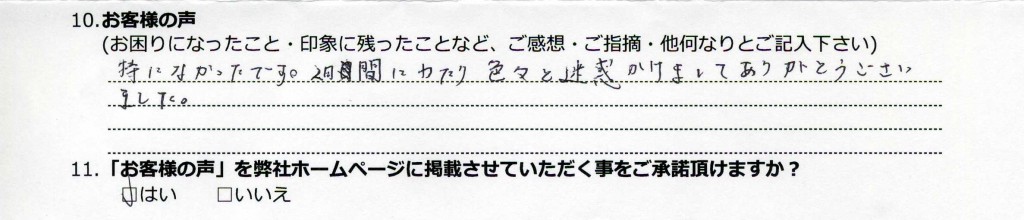 10.お客様の声
(お困りになったこと・印象に残ったことなど、ご感想・ご指摘・他何なりとご記入下さい)
特になかったです。2週間にわたり色々と迷惑かけましてありがとうござい
ました。
11.「お客様の声」を弊社ホームページに掲載させていただく事をご承諾頂けますか？
□はい　□いいえ